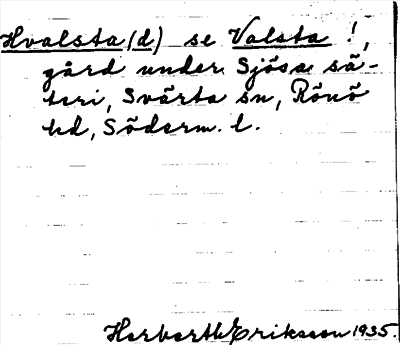 Hvalsta(d) se Valsta !,
gård under Sjösa sä-
teri, Svärta sn, Rönö
hd, Söderm. l.
Herbert Eriksson 1935.